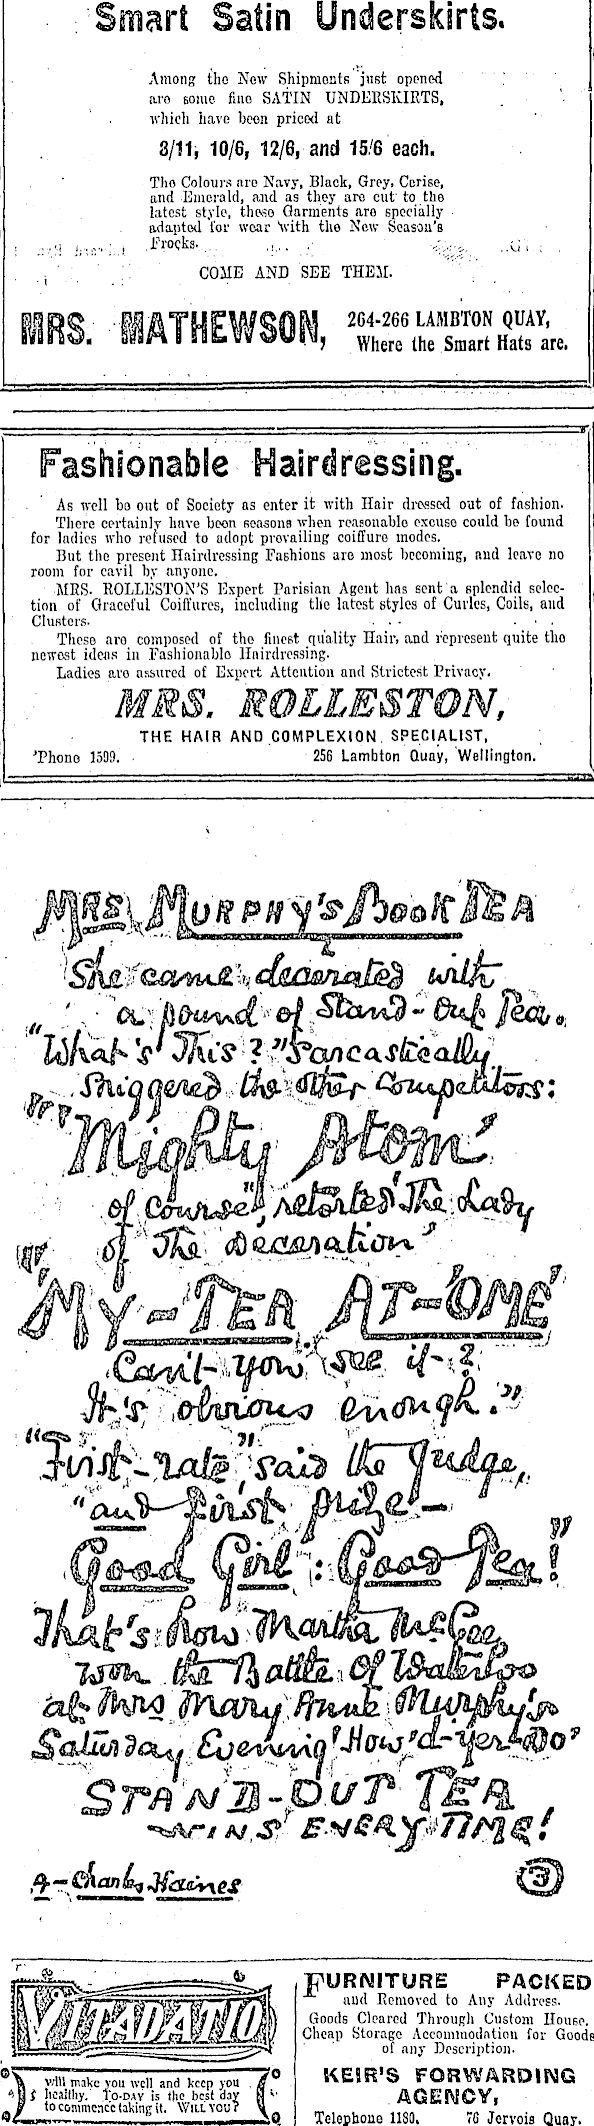 Smart Satin Underskirts.
Among the New Shipments just opened
are some fine SATIN UNDERSKIRTS,
which have been priced at
8/11, 10/6, 12/6, and 15/6 each.
The Colours are Navy, Black, Grey, Cerise,
and Emerald, and as they are cut to the
latest style, these Garments are specially
adapted for wear with the New Season's
Frocks.
COME AND SEE THEM.
MRS. MATHEWSON,
264-266 LAMBTON QUAY,
Where the Smart Hats are.
Fashionable Hairdressing.
As well be out of Society as enter it with Hair dressed out of fashion.
There certainly have been seasons when reasonable excuse could be found
for ladies who refused to adopt prevailing coiffure modes.
But the present Hairdressing Fashions are most becoming, and leave no
room for cavil by anyone.
MRS. ROLLESTON'S Expert Parisian Agent has sent a splendid selec-
tion of Graceful Coiffures, including the latest styles of Curles, Coils, and
Clusters.
These are composed of the finest quality Hair, and represent quite the
newest ideas in Fashionable Hairdressing.
Ladies are assured of Expert Attention and Strictest Privacy.
MRS. ROLLESTON,
THE HAIR AND COMPLEXION SPECIALIST,
'Phone 1599. 256 Lambton Quay, Wellington.
MRS MURPHY'S BOOK TEA
She came decorated with
a pound of Stand-Out Tea.
"What's This?" Sarcastically
sniggered the other Competitors:
"'Mighty Atom'
of course", retorted 'The Lady
of The Decoration'
"'MY-TEA AT-'OME'
Can't you see it-?
It's obvious enough."
"First-rate," said the Judge,
"and first prize-
Good Girl: Good Tea!"
That's how Martha McGee
won the Battle of Waterloo
at Mrs Mary Anne Murphy's
Saturday Evening 'How'd-yer-Do'
STAND-OUT TEA
WINS EVERY TIME!
A-Charles Haines
3
VITADATIO
will make you well and keep you
healthy. TO-DAY is the best day
to commence taking it. WILL YOU?
FURNITURE PACKED
and Removed to Any Address.
Goods Cleared Through Custom House.
Cheap Storage Accommodation for Goods
of any Description.
KEIR'S FORWARDING
AGENCY,
Telephone 1180. 76 Jervois Quay.